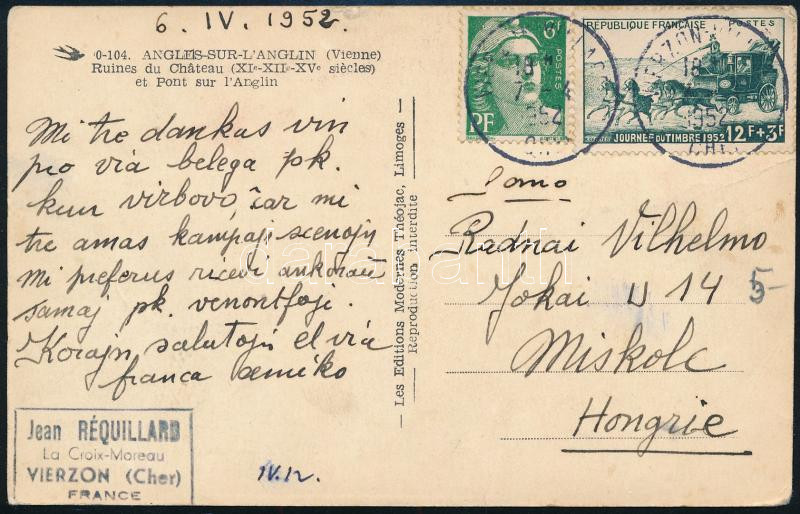 6. IV. 1952.
0-104. ANGLES-SUR-L'ANGLIN (Vienne)
Ruines du Château (XIe-XIIe-XVe siècles)
et Pont sur l'Anglin
Mi tre dankas vin
pro via belega pk.
kun virbovo, ĉar mi
tre amas kampajn scenojn
mi preferus ricevi ankoraŭ
samaj pk. venontfoje.
Korajn salutojn el via
franca amiko
Jean RÉQUILLARD
La Croix-Moreau
VIERZON (Cher)
FRANCE
IV.12.
Les Editions Modernes Théojac, Limoges
Reproduction interdite
6F
POSTES
RF
RÉPUBLIQUE FRANÇAISE POSTES
JOURNÉE DU TIMBRE 1952 12F+3F
18
1952
CHER
18
1952
CHER
Radnai Vilhelmo
Jokai u 14
Miskolc
Hongrie
5-
darabanth